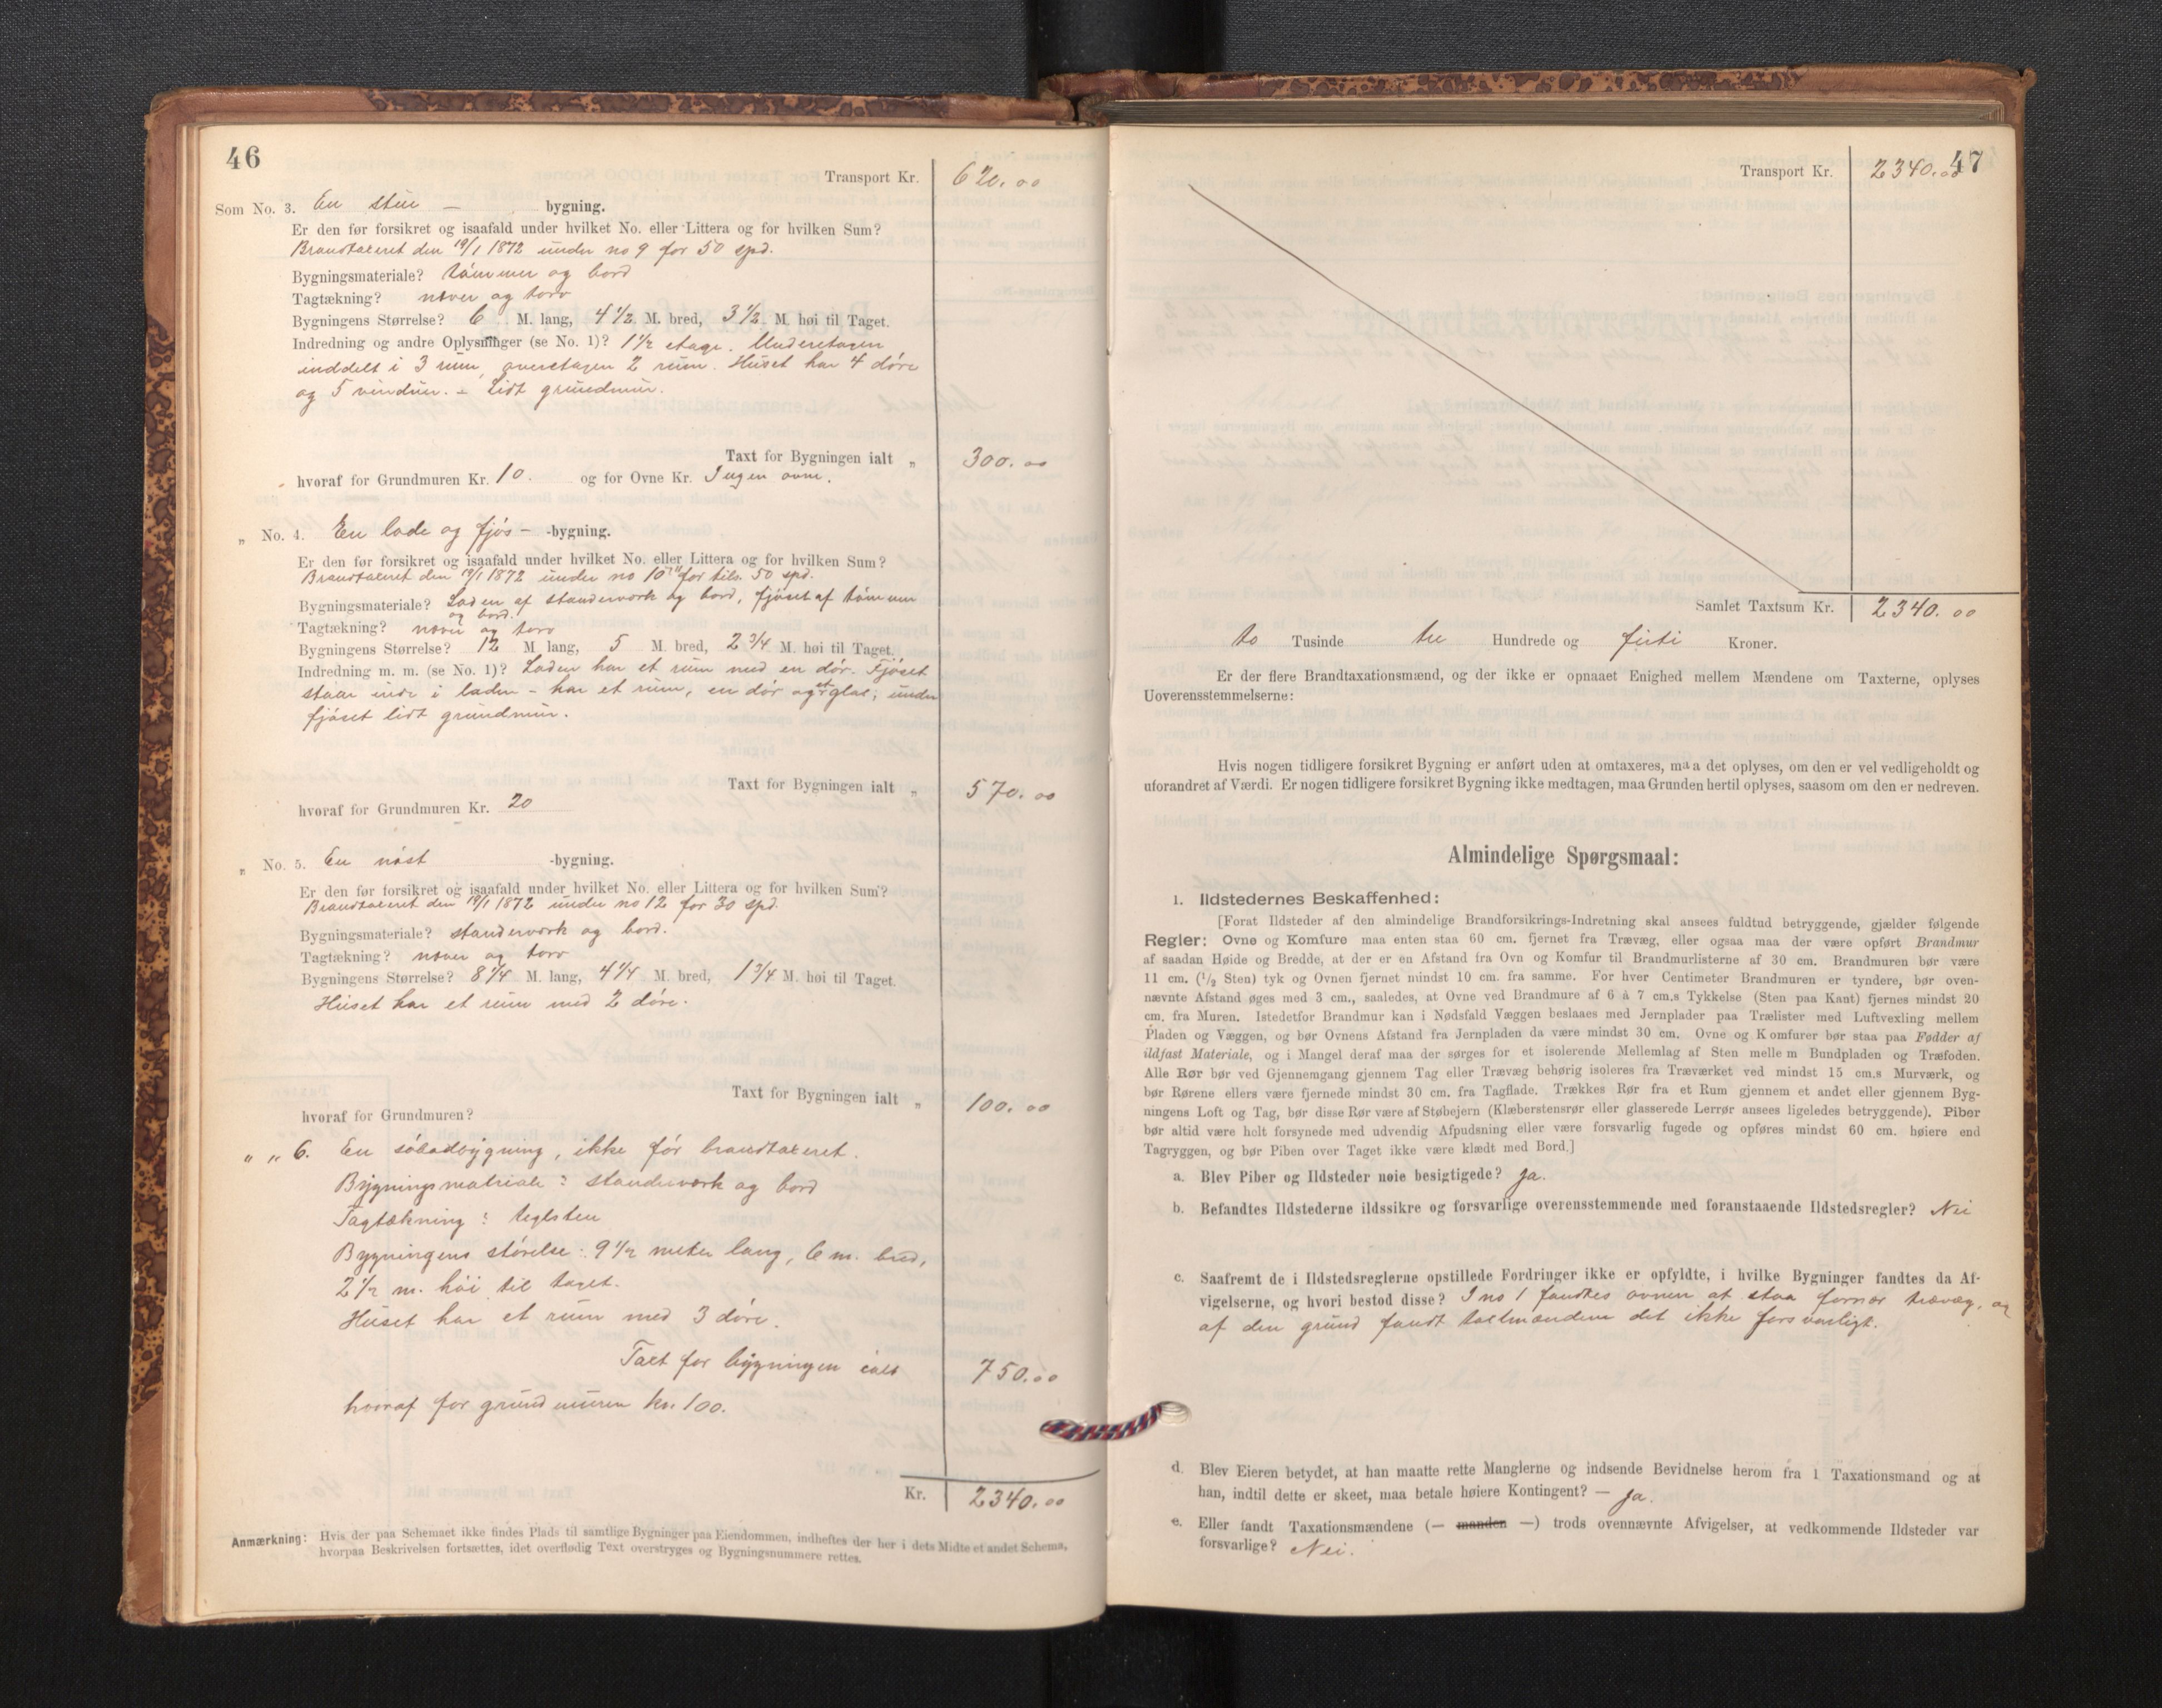 46
Transport Kr. 620.00
Som No. 3. En stue — bygning.
Er den før forsikret og isaafald under hvilket No. eller Littera og for hvilken Sum?
Brandtaxeret den 19/1 1872 under no 9 for 50 spd.
Bygningsmateriale? tømmer og bord
Tagtækning? næver og torv
Bygningens Størrelse? 6 M. lang, 4 1/2 M. bred, 3 1/2 M. høi til Taget.
Indredning og andre Oplysninger (se No. 1)? 1 1/2 etage. Underetagen
inddelt i 3 rum, overetagen 2 rum. Huset har 4 døre
og 5 vinduer. – Lidt grundmur.
Taxt for Bygningen ialt „ 300.00
hvoraf for Grundmuren Kr. 10. og for Ovne Kr. Ingen ovne.
„ No. 4. En lade og fjøs – -bygning.
Er den før forsikret og isaafald under hvilket No. eller Littera og for hvilken Sum?
Brandtaxeret den 19/1 1872 under no 10 for tils. 50 spd.
Bygningsmateriale? Laden af standerverk og bord, fjøset af tømmer
og bord.
Tagtækning? næver og torv
Bygningens Størrelse? 12 M lang, 5 M. bred, 2 3/4 M. høi til Taget.
Indredning m. m. (se No. 1)? Laden har et rum med en dør. Fjøset
staar inde i laden – har et rum, en dør og et glas; under
fjøset lidt grundmur.
Taxt for Bygningen ialt „ 570.00
hvoraf for Grundmuren Kr. 20
„ No. 5. En nøst -bygning.
Er den før forsikret og isaafald under hvilket No. eller Littera og for hvilken Sum?
Brandtaxeret den 19/1 1872 under no 12 for 30 spd.
Bygningsmateriale? standerverk og bord.
Tagtækning? næver og torv
Bygningens Størrelse? 8 1/4 M. lang, 4 1/4 M. bred, 1 3/4 M. høi til Taget.
Huset har et rum med 2 døre.
Taxt for Bygningen ialt „ 100.00
hvoraf for Grundmuren?
„ „ 6. En søbodbygning, ikke før brandtaxeret.
Bygningsmatriale: standerverk og bord
Tagtækning: teglsten
Bygningens størelse: 9 1/2 meter lang, 6 m. bred,
2 1/2 m. høi til taget.
Huset har et rum med 3 døre.
Taxt for bygningen ialt 750.00
hvoraf for grundmuren kr. 100.
Kr. 2340.00
Anmærkning: Hvis der paa Schemaet ikke findes Plads til samtlige Bygninger paa Eiendommen, indheftes der her i dets Midte et andet Schema,
hvorpaa Beskrivelsen fortsættes, idet overflødig Text overstryges og Bygningsnummere rettes.
47
Transport Kr. 2340.00
Samlet Taxtsum Kr. 2340.00
to Tusinde tre Hundrede og firti Kroner.
Er der flere Brandtaxationsmænd, og der ikke er opnaaet Enighed mellem Mændene om Taxterne, oplyses
Uoverensstemmelserne:
Hvis nogen tidligere forsikret Bygning er anført uden at omtaxeres, maa det oplyses, om den er vel vedligeholdt og
uforandret af Værdi. Er nogen tidligere forsikret Bygning ikke medtagen, maa Grunden hertil oplyses, saasom om den er nedreven.
Almindelige Spørgsmaal:
1. Ildstedernes Beskaffenhed:
[Forat Ildsteder af den almindelige Brandforsikrings-Indretning skal ansees fuldtud betryggende, gjælder følgende
Regler: Ovne og Komfure maa enten staa 60 cm. fjernet fra Trævæg, eller ogsaa maa der være opført Brandmur
af saadan Høide og Bredde, at der er en Afstand fra Ovn og Komfur til Brandmurlisterne af 30 cm. Brandmuren bør være
11 cm. (1/2 Sten) tyk og Ovnen fjernet mindst 10 cm. fra samme. For hver Centimeter Brandmuren er tyndere, bør oven-
nævnte Afstand øges med 3 cm., saaledes, at Ovne ved Brandmure af 6 à 7 cm.s Tykkelse (Sten paa Kant) fjernes mindst 20
cm. fra Muren. Istedetfor Brandmur kan i Nødsfald Væggen beslaaes med Jernplader paa Trælister med Luftvexling mellem
Pladen og Væggen, og bør Ovnens Afstand fra Jernpladen da være mindst 30 cm. Ovne og Komfurer bør staa paa Fødder af
ildfast Materiale, og i Mangel deraf maa der sørges for et isolerende Mellemlag af Sten mellem Bundpladen og Træfoden.
Alle Rør bør ved Gjennemgang gjennem Tag eller Trævæg behørig isoleres fra Træværket ved mindst 15 cm.s Murværk, og
bør Rørene ellers være fjernede mindst 30 cm. fra Tagflade. Trækkes Rør fra et Rum gjennem et andet eller gjennem Byg-
ningens Loft og Tag, bør disse Rør være af Støbejern (Klæberstensrør eller glasserede Lerrør ansees ligeledes betryggende). Piber
bør altid være holt forsynede med udvendig Afpudsning eller være forsvarlig fugede og opføres mindst 60 cm. høiere end
Tagryggen, og bør Piben over Taget ikke være klædt med Bord.]
a. Blev Piber og Ildsteder nøie besigtigede? Ja.
b. Befandtes Ildstederne ildssikre og forsvarlige overensstemmende med foranstaaende Ildstedsregler? Nei
c. Saafremt de i Ildstedsreglerne opstillede Fordringer ikke er opfyldte, i hvilke Bygninger fandtes da Af-
vigelserne, og hvori bestod disse? I no 1 fandtes ovnen at staa fornær trævæg, og
af den grund fandt taxtmændene det ikke forsvarligt.
d. Blev Eieren betydet, at han maatte rette Manglerne og indsende Bevidnelse herom fra 1 Taxationsmand og at
han, indtil dette er skeet, maa betale høiere Kontingent? — Ja.
e. Eller fandt Taxationsmændene (— manden —) trods ovennævnte Afvigelser, at vedkommende Ildsteder var
forsvarlige? Nei.